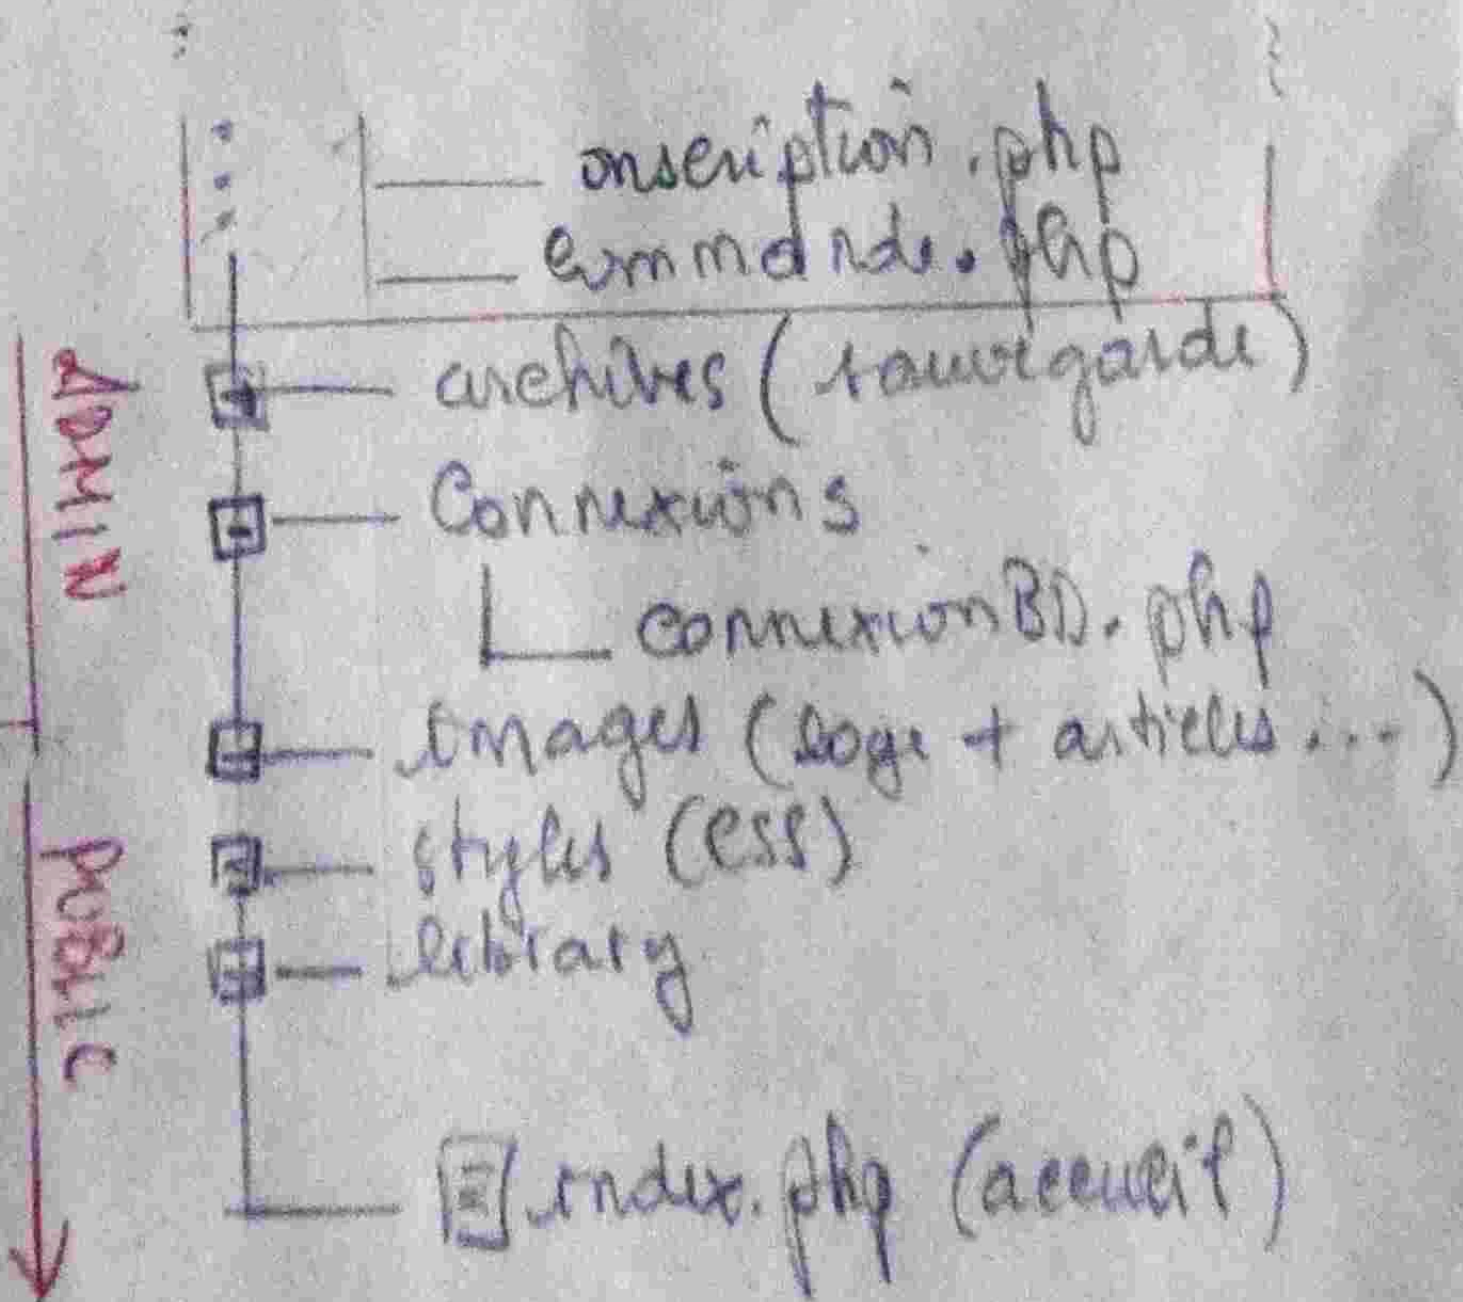 inscription.php
commande.php
archives (sauvegarde)
Connexions
connexionBD.php
images (logo + articles...)
styles (CSS)
library
index.php (accueil)
ADMIN
PUBLIC